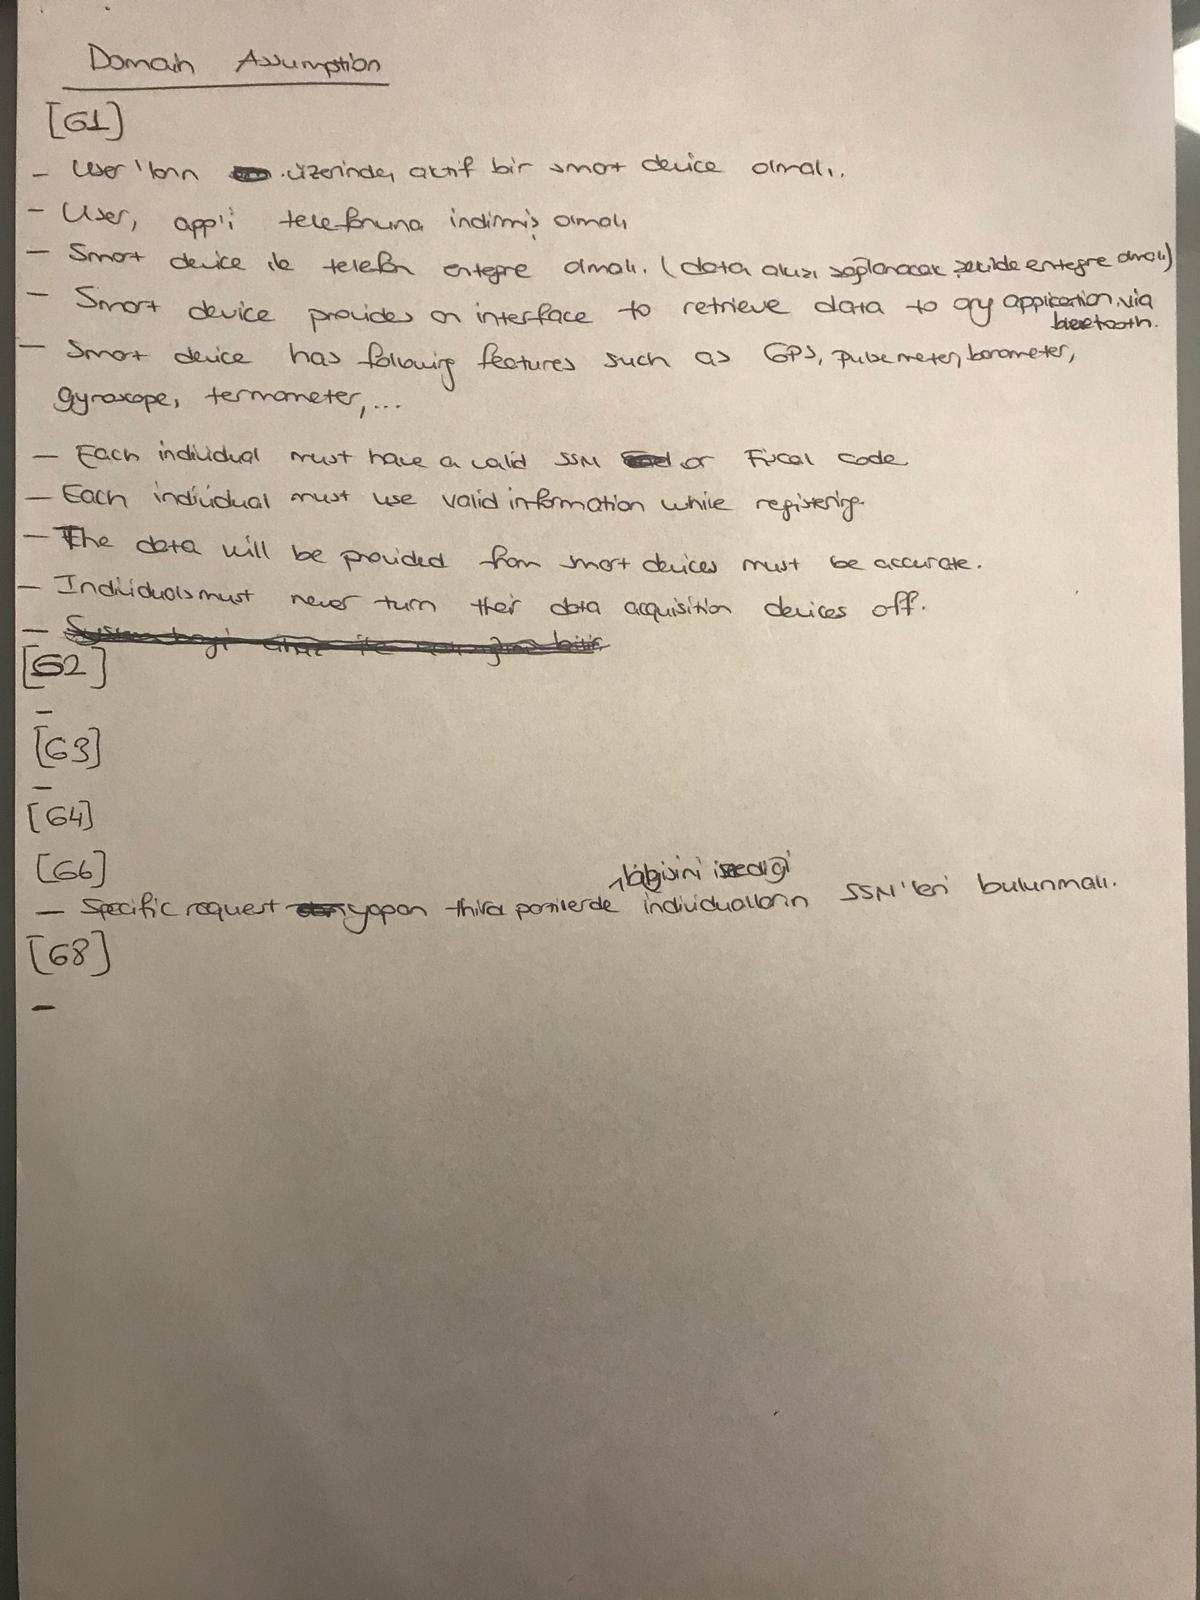 Domain Assumption
[G1]
- User'ların üzerinde, aktif bir smart device olmalı.
- User, app'i telefonuna indirmiş olmalı
- Smart device ile telefon entegre olmalı. (data akışı sağlanacak şekilde entegre olmalı)
- Smart device provides an interface to retrieve data to any application via
bluetooth.
- Smart device has following features such as GPS, pulse meter, barometer,
gyroscope, termometer, ...
- Each individual must have a valid SSN or Fiscal code
- Each individual must use valid information while registering.
- The data will be provided from smart devices must be accurate.
- Individuals must never turn their data acquisition devices off.
-
[G2]
-
[G3]
-
[G4]
[G6]
bilgisini istediği
- Specific request yapan third partilerde individualların SSN'leri bulunmalı.
[G8]
-